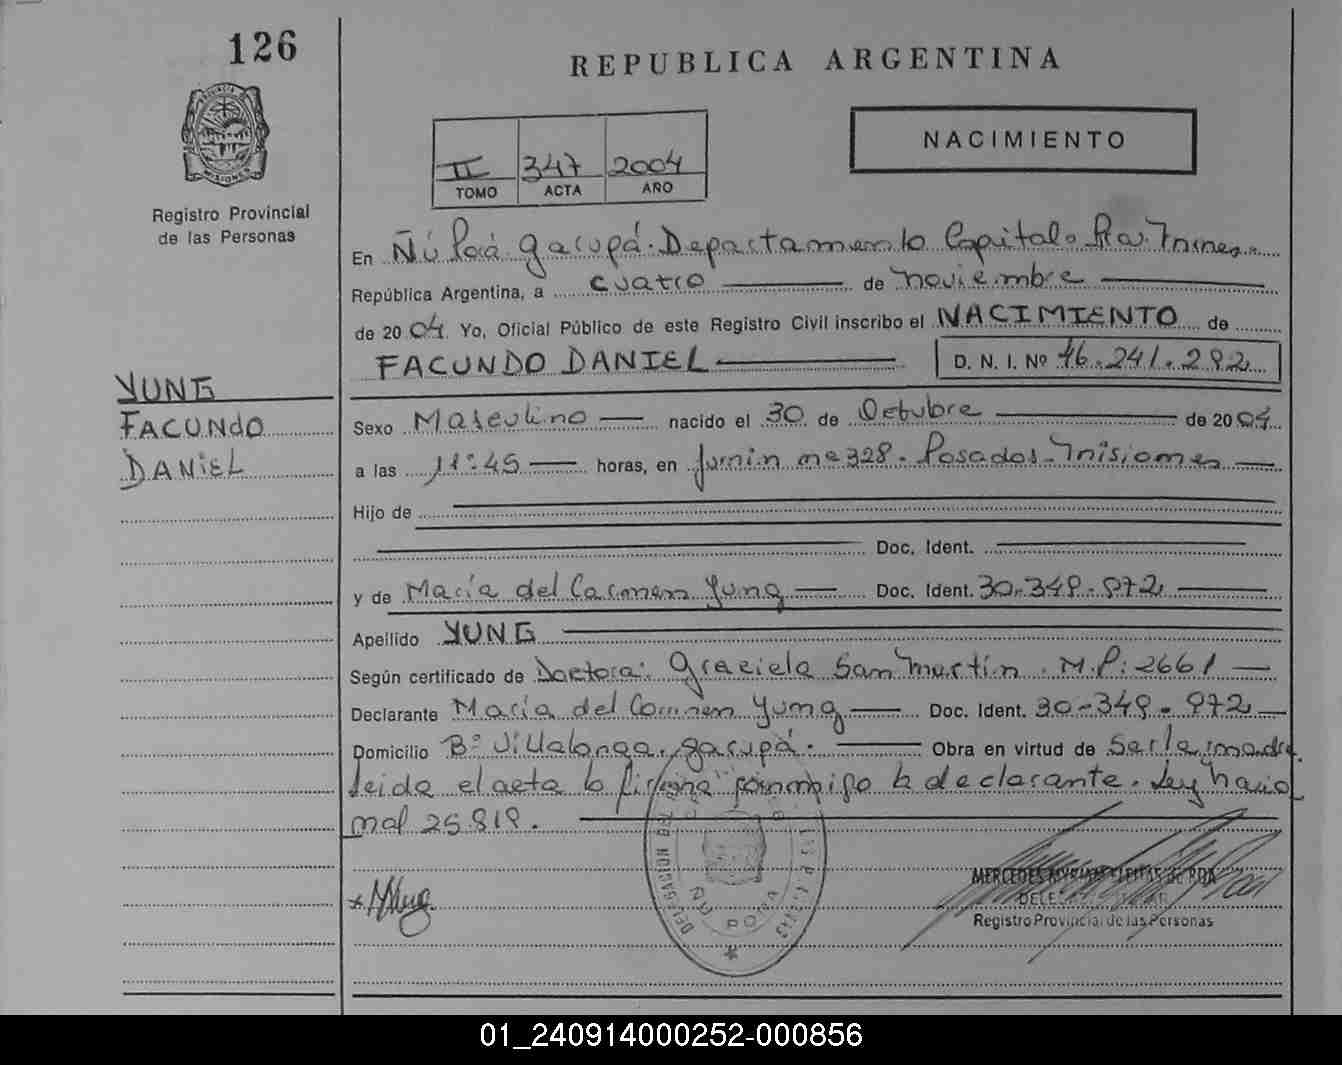 126
REPUBLICA ARGENTINA
NACIMIENTO
II 347 2004
TOMO ACTA AÑO
PROVINCIA DE MISIONES
Registro Provincial
de las Personas
En Ñú Porá. Garupá. Departamento Capital.
República Argentina, a cuatro de noviembre
de 2004. Yo, Oficial Público de este Registro Civil inscribo el NACIMIENTO de
FACUNDO DANIEL D. N. I. Nº 46.241.282
YUNG
FACUNDO
DANIEL
Sexo Masculino nacido el 30 de Octubre de 2004
a las 11:45 horas, en Junin nº 328. Posadas. Misiones
Hijo de
Doc. Ident.
y de María del Carmen Yung Doc. Ident. 30.349.972
Apellido YUNG
Según certificado de Doctora: Graciela San Martín. M.P: 2661
Declarante María del Carmen Yung Doc. Ident. 30.349.972
Domicilio Bº Villalonga. Garupá. Obra en virtud de Ser la madre.
Leida el acta la firma conmigo la declarante. Ley nacio
nal 25.819.
ÑU PORA
MERCEDES MYRIAM de ROA
Registro Provincial de las Personas
01_240914000252-000856